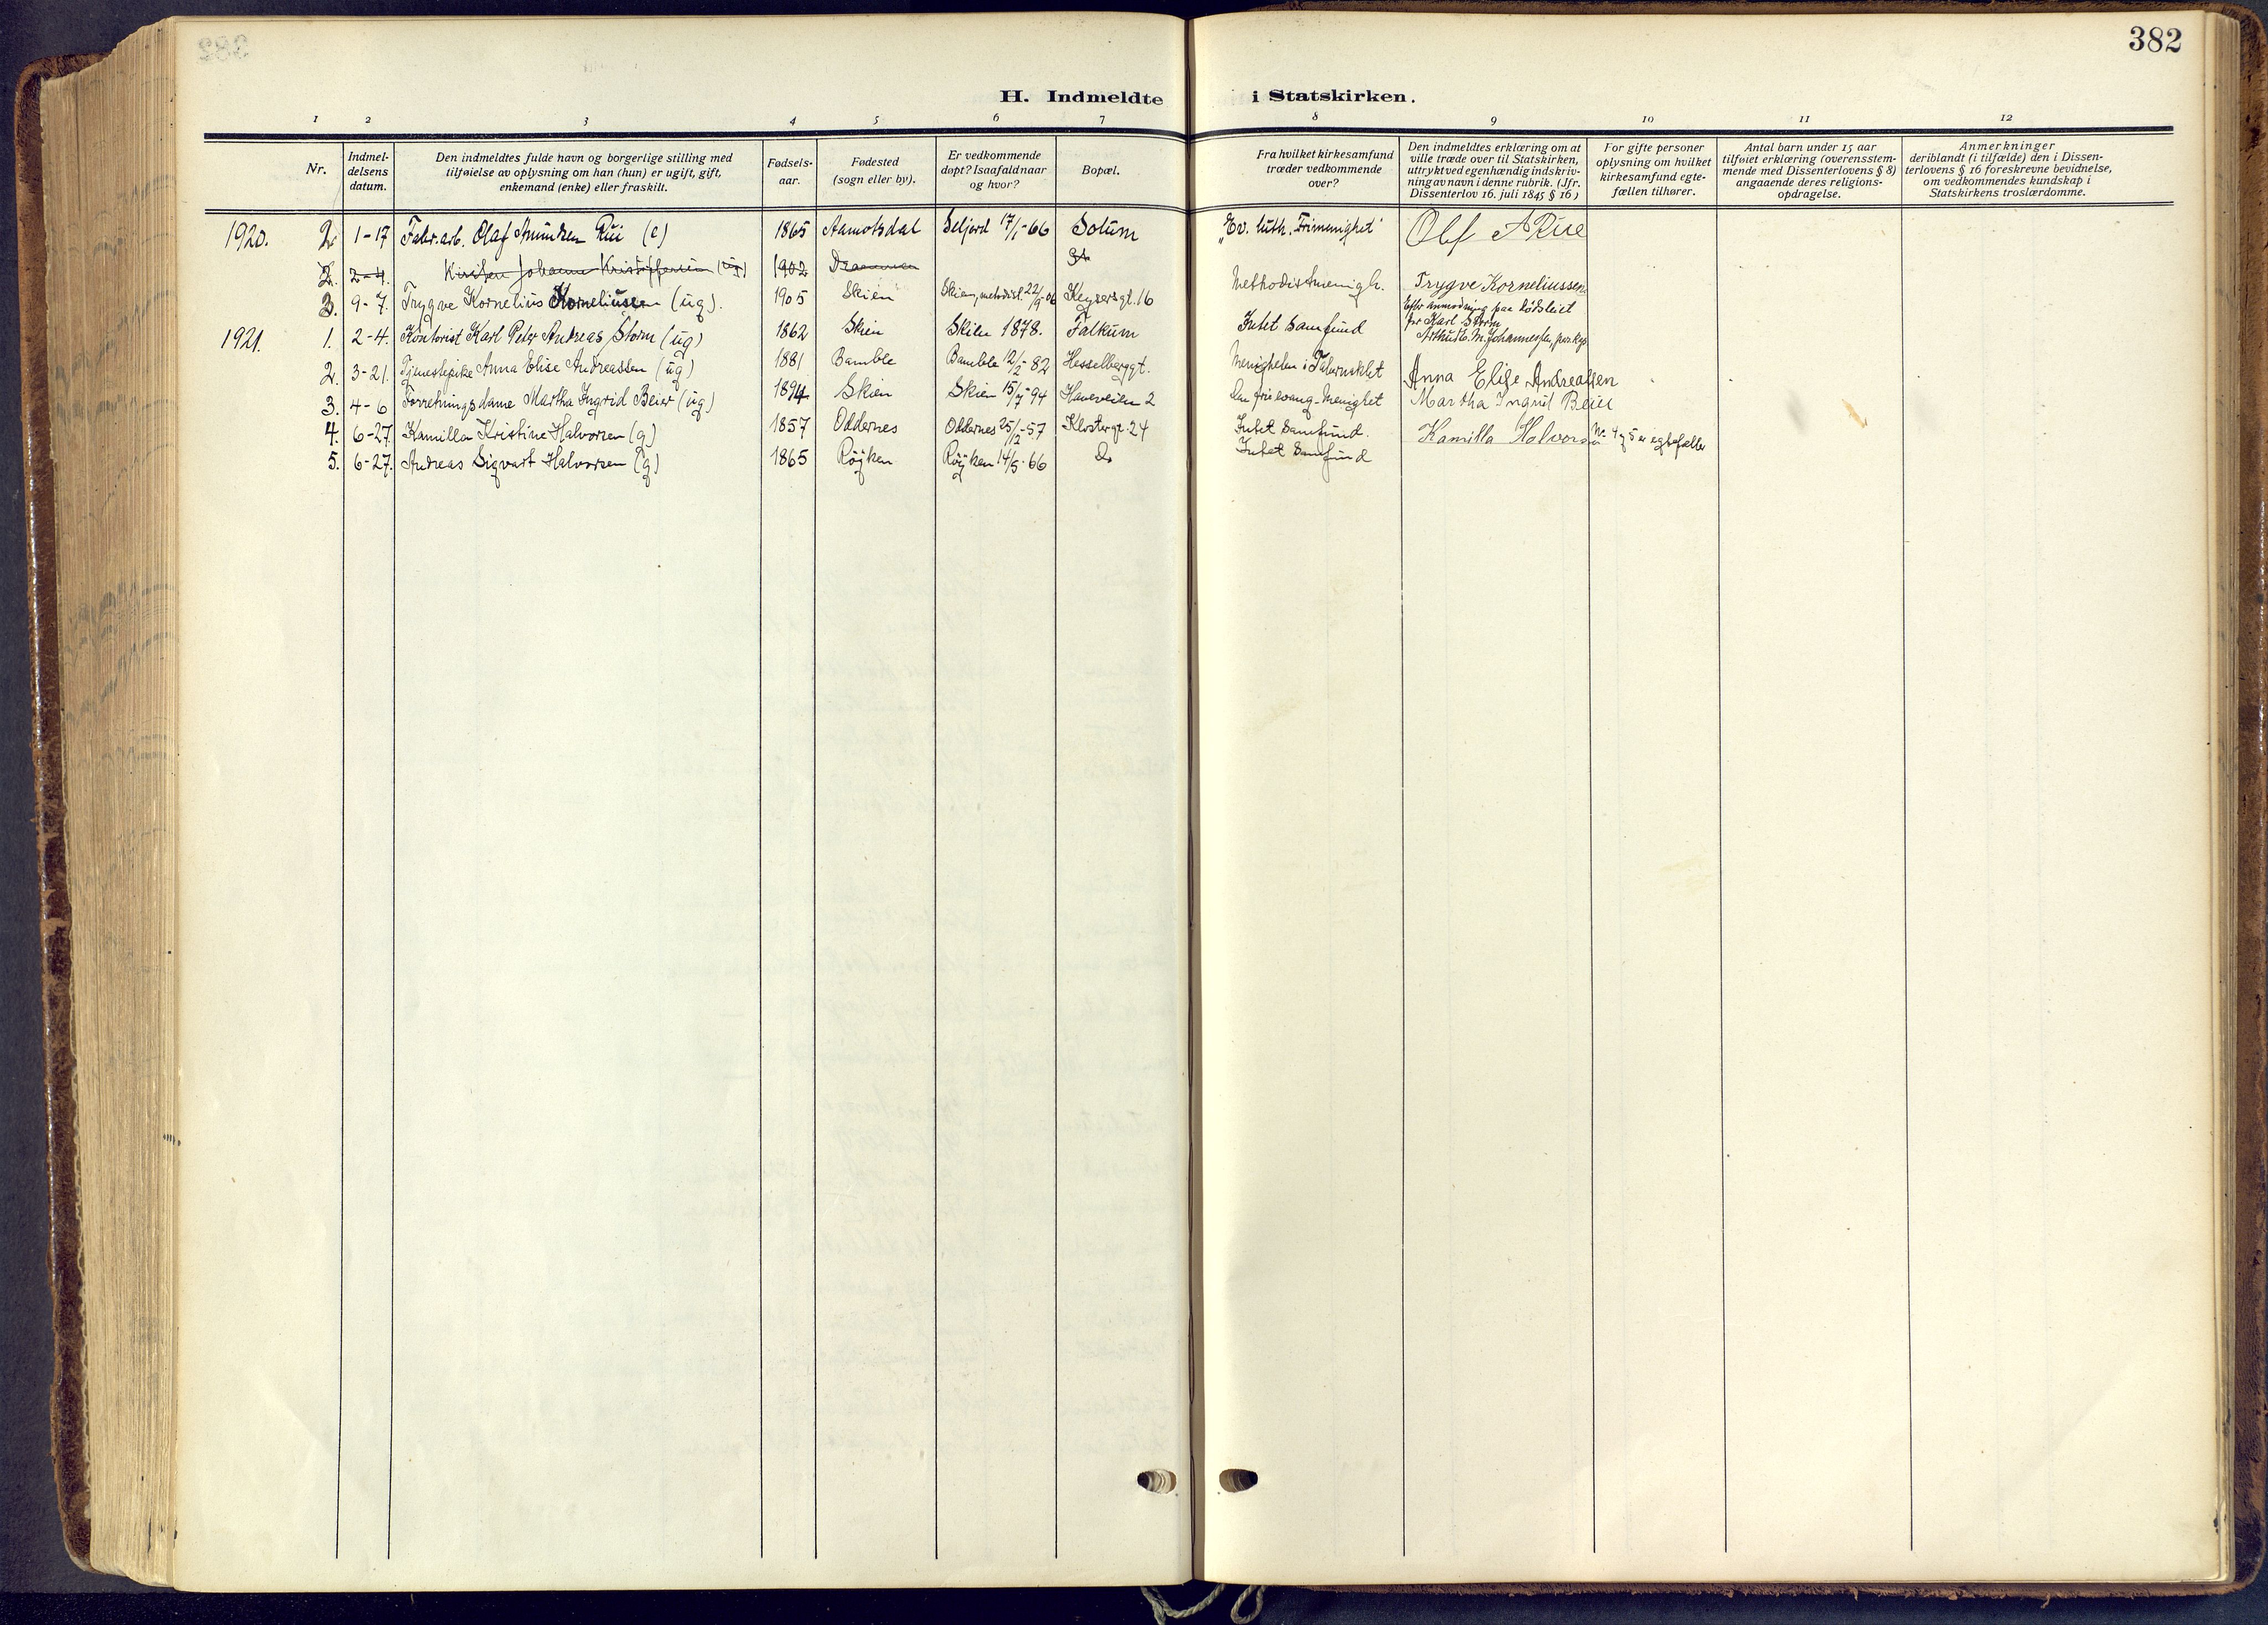 382
H. Indmeldte i Statskirken.
1 2 3 4 5 6 7 8 9 10 11 12
Nr.
Indmel-
delsens
datum.
Den indmeldtes fulde navn og borgerlige stilling med
tilføielse av oplysning om han (hun) er ugift, gift,
enkemand (enke) eller fraskilt.
Fødsels-
aar.
Fødested
(sogn eller by).
Er vedkommende
døpt? Isaafald naar
og hvor?
Bopæl.
Fra hvilket kirkesamfund
træder vedkommende
over?
Den indmeldtes erklæring om at
ville træde over til Statskirken,
uttrykt ved egenhændig indskriv-
ning av navn i denne rubrik. (Jfr.
Dissenterlov 16. juli 1845 § 16)
For gifte personer
oplysning om hvilket
kirkesamfund egte-
fællen tilhører.
Antal barn under 15 aar
tilføiet erklæring (overensstem-
mende med Dissenterlovens § 8)
angaaende deres religions-
opdragelse.
Anmerkninger
deriblandt (i tilfælde) den i Dissen-
terlovens § 16 foreskrevne bevidnelse,
om vedkommendes kundskap i
Statskirkens troslærdomme.
1920. 2. 1-17 Fabr.arb. Olaf Amundsen Rui (e) 1865 Aamotsdal Seljord 17/1-66 Solum "Ev. luth. Frimenighet" Olaf A Rue
2. 2-4. Kirsten Johanne Kristoffersen (ug) 1902 Drammen
3. 9-7. Trygve Kornelius Korneliussen (ug). 1905 Skien Skien, metodist. 22/9-06 Keysersgt. 16 Methodistmenigh. Trygve Korneliussen
1921. 1. 2-4. Kontorist Karl Peter Andreas Storm (ug) 1862 Skien Skien 1878. Falkum Intet samfund Efter anmodning paa dødsleiet
for Karl Storm
2. 3-21. Tjenestepike Anna Elise Andreassen (ug) 1881 Bamble Bamble 12/2-82 Hesselberggt. Menigheten i Tabernaklet Anna Elise Andreassen
3. 4-6 Forretningsdame Martha Ingrid Beier (ug) 1894 Skien Skien 15/7-94 Haveveien 2 Den frie evang. Menighet Martha Ingrid Beier
4. 6-27. Kamilla Kristine Halvorsen (g) 1857 Oddernes Oddernes 25/12-57 Klostergt. 24 Intet Samfund. Kamilla Halvorsen Nr. 4 og 5 er egtefæller
5. 6-27. Andreas Sigvart Halvorsen (g) 1865 Röyken Röyken 14/5-66 Do Intet Samfund